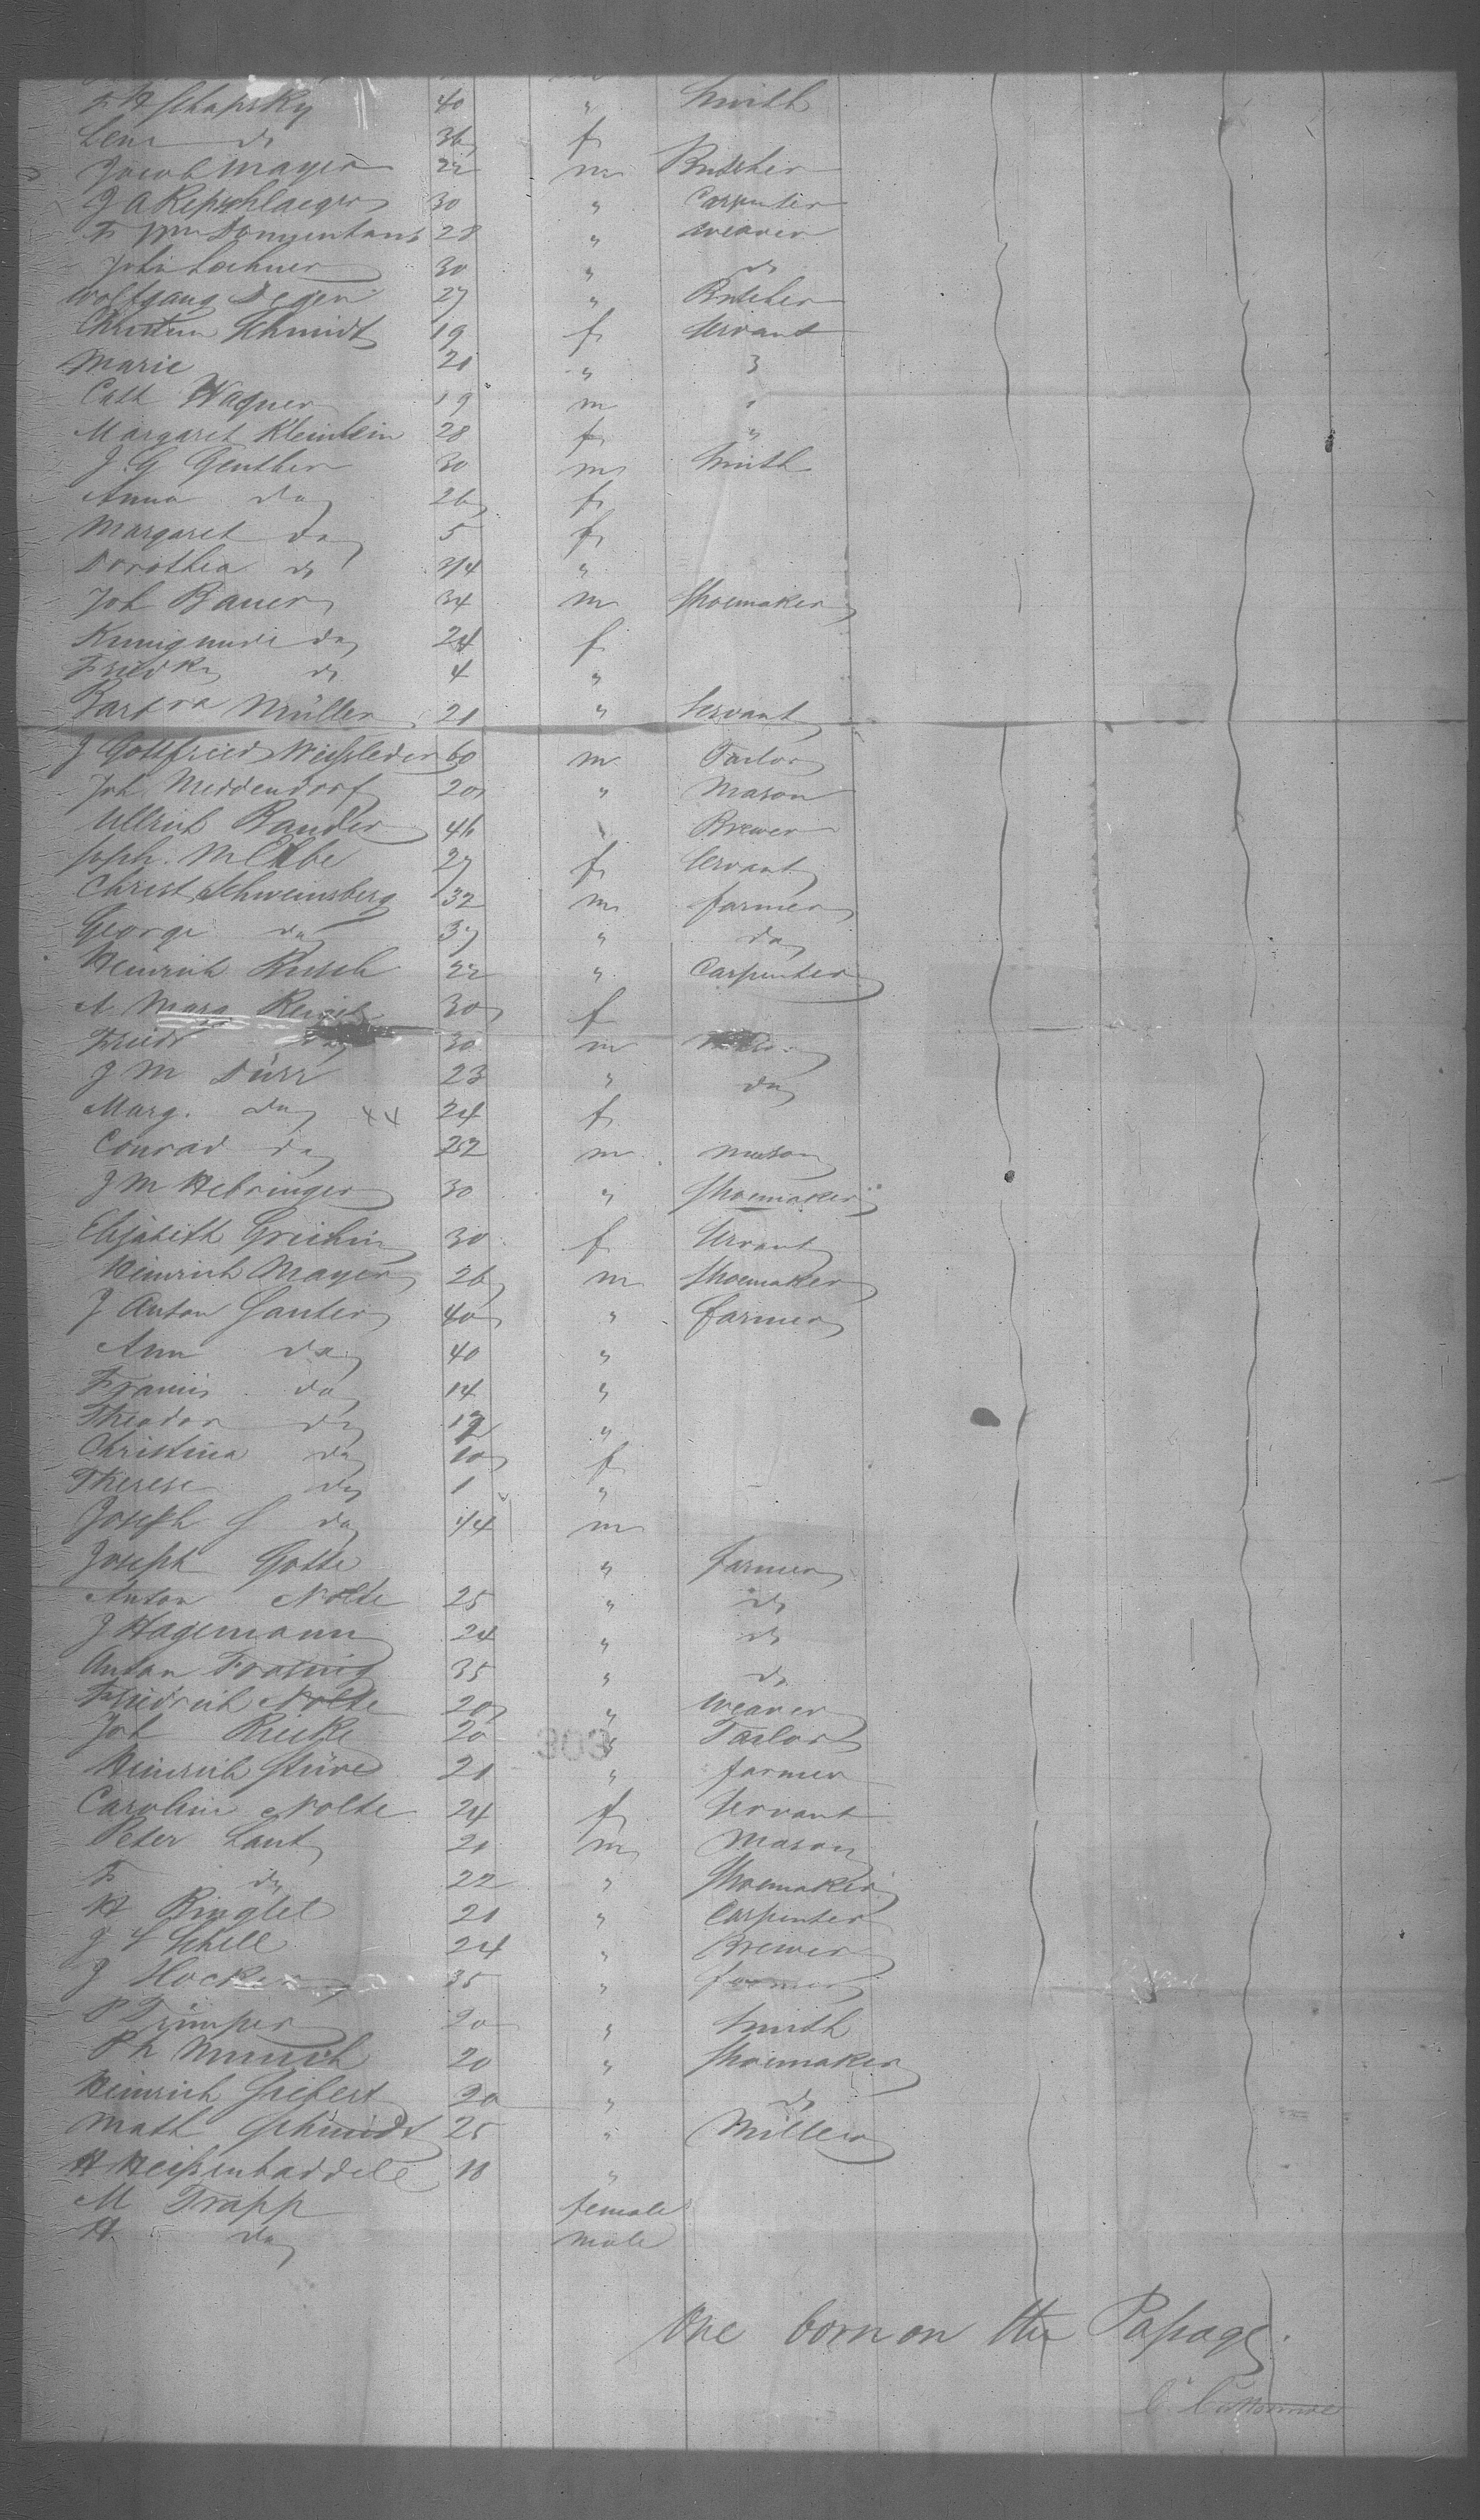 F A Schapsky 40 " Smith
Lena do 36 f
Jacob Mayer 22 m Butcher
J A Repschlaeger 30 " Carpenter
Fr Wm 28 " weaver
John Lochner 30 " do
Wolfgang Degen 27 " Butcher
Christina Schmidt 19 f Servant
Marie 21 " "
Cath Wagner 19 m "
Margaret Kleinlein 28 f "
J. G Genther 30 m Smith
Anna do 26 f
Margaret do 5 f
Dorothea do 3/4 "
Joh Bauer 34 m Shoemaker
Kunigunde do 24 f
Friedk do 4 "
Barbra Müller 21 " Servant
J Gottfried Weissleder 60 m Tailor
Joh Meddendorf 20 " Mason
Ullrich Bauder 46 " Brewer
Joseph. 27 f Servant
Christ Schweinsberg 32 m farmer
George do 37 " do
Heinrich Busch 22 " Carpenter
A. Marg 30 f
Friedr do 30 m
J M Dürr 23 " do
Marg. do 24 f
Conrad do 22 m mason
J M Hebringer 30 " Shoemaker
Elisabeth 30 f Servant
Heinrich Mayer 26 m Shoemaker
J Anton Sauter 40 " farmer
Ann do 40 "
Francis do 14 "
Theodor do 12 "
Christina do 10 f
Therese do 1 "
Joseph S do 1/4 m
Joseph Gotte " farmer
Anton Nolte 25 " do
J Hagemann 24 " do
Anton 35 " do
Friedrich Nolte 20 " weaver
Joh Ricke 20 " Tailor
303
Heinrich Stüve 21 " farmer
Carolin Nolte 24 f Servant
Peter Laut 21 m Mason
F do 22 " Shoemaker
H Ringlet 21 " Carpenter
J S Schell 24 " Brewer
J Hocker 35 " farmer
P Trümper 20 " Smith
Ph Munich 20 " Shoemaker
Heinrich Siebert 20 " do
Math Schmidt 25 " Miller
H 18 "
M Trapp female
H do male
One born on the Passage.